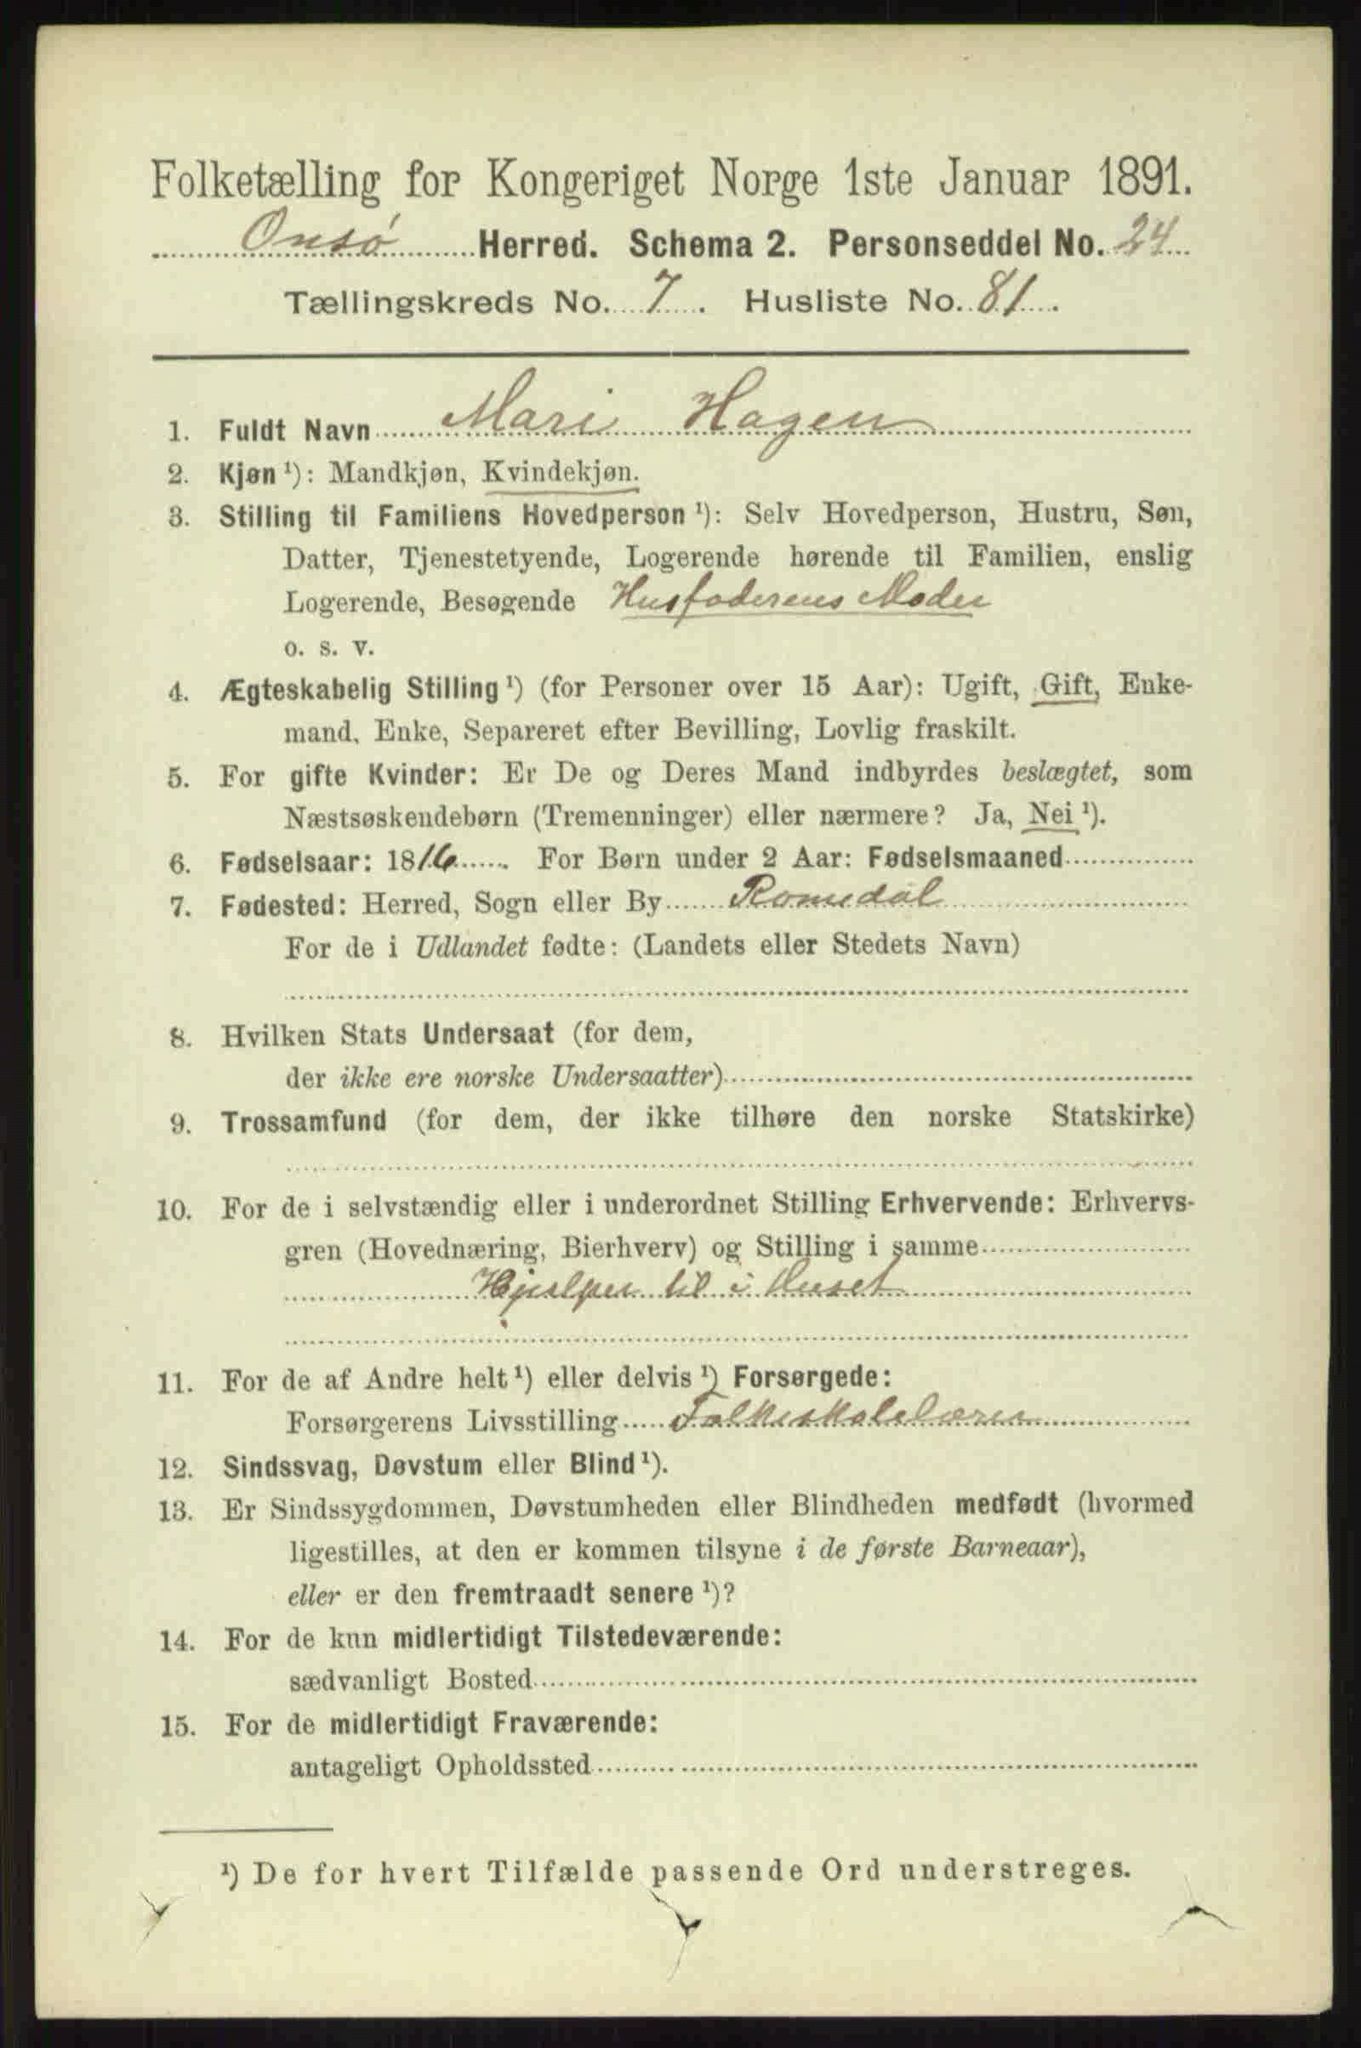 Folketælling for Kongeriget Norge 1ste Januar 1891.
Onsø Herred. Schema 2. Personseddel No. 24
Tællingskreds No. 7. Husliste No. 81.
1. Fuldt Navn Mari Hagen
2. Kjøn ¹): Mandkjøn, Kvindekjøn.
3. Stilling til Familiens Hovedperson ¹): Selv Hovedperson, Hustru, Søn,
Datter, Tjenestetyende, Logerende hørende til Familien, enslig
Logerende, Besøgende Husfaderens Moder
o. s. v.
4. Ægteskabelig Stilling ¹) (for Personer over 15 Aar): Ugift, Gift, Enke-
mand, Enke, Separeret efter Bevilling, Lovlig fraskilt.
5. For gifte Kvinder: Er De og Deres Mand indbyrdes beslægtet, som
Næstsøskendebørn (Tremenninger) eller nærmere? Ja, Nei ¹).
6. Fødselsaar: 1816. For Børn under 2 Aar: Fødselsmaaned
7. Fødested: Herred, Sogn eller By Romedal
For de i Udlandet fødte: (Landets eller Stedets Navn)
8. Hvilken Stats Undersaat (for dem,
der ikke ere norske Undersaatter)
9. Trossamfund (for dem, der ikke tilhøre den norske Statskirke)
10. For de i selvstændig eller i underordnet Stilling Erhvervende: Erhvervs-
gren (Hovednæring, Bierhverv) og Stilling i samme
Hjælper til i Huset
11. For de af Andre helt ¹) eller delvis ¹) Forsørgede:
Forsørgerens Livsstilling Folkeskolelærer
12. Sindssvag, Døvstum eller Blind ¹).
13. Er Sindssygdommen, Døvstumheden eller Blindheden medfødt (hvormed
ligestilles, at den er kommen tilsyne i de første Barneaar),
eller er den fremtraadt senere ¹)?
14. For de kun midlertidigt Tilstedeværende:
sædvanligt Bosted
15. For de midlertidigt Fraværende:
antageligt Opholdssted
¹) De for hvert Tilfælde passende Ord understreges.